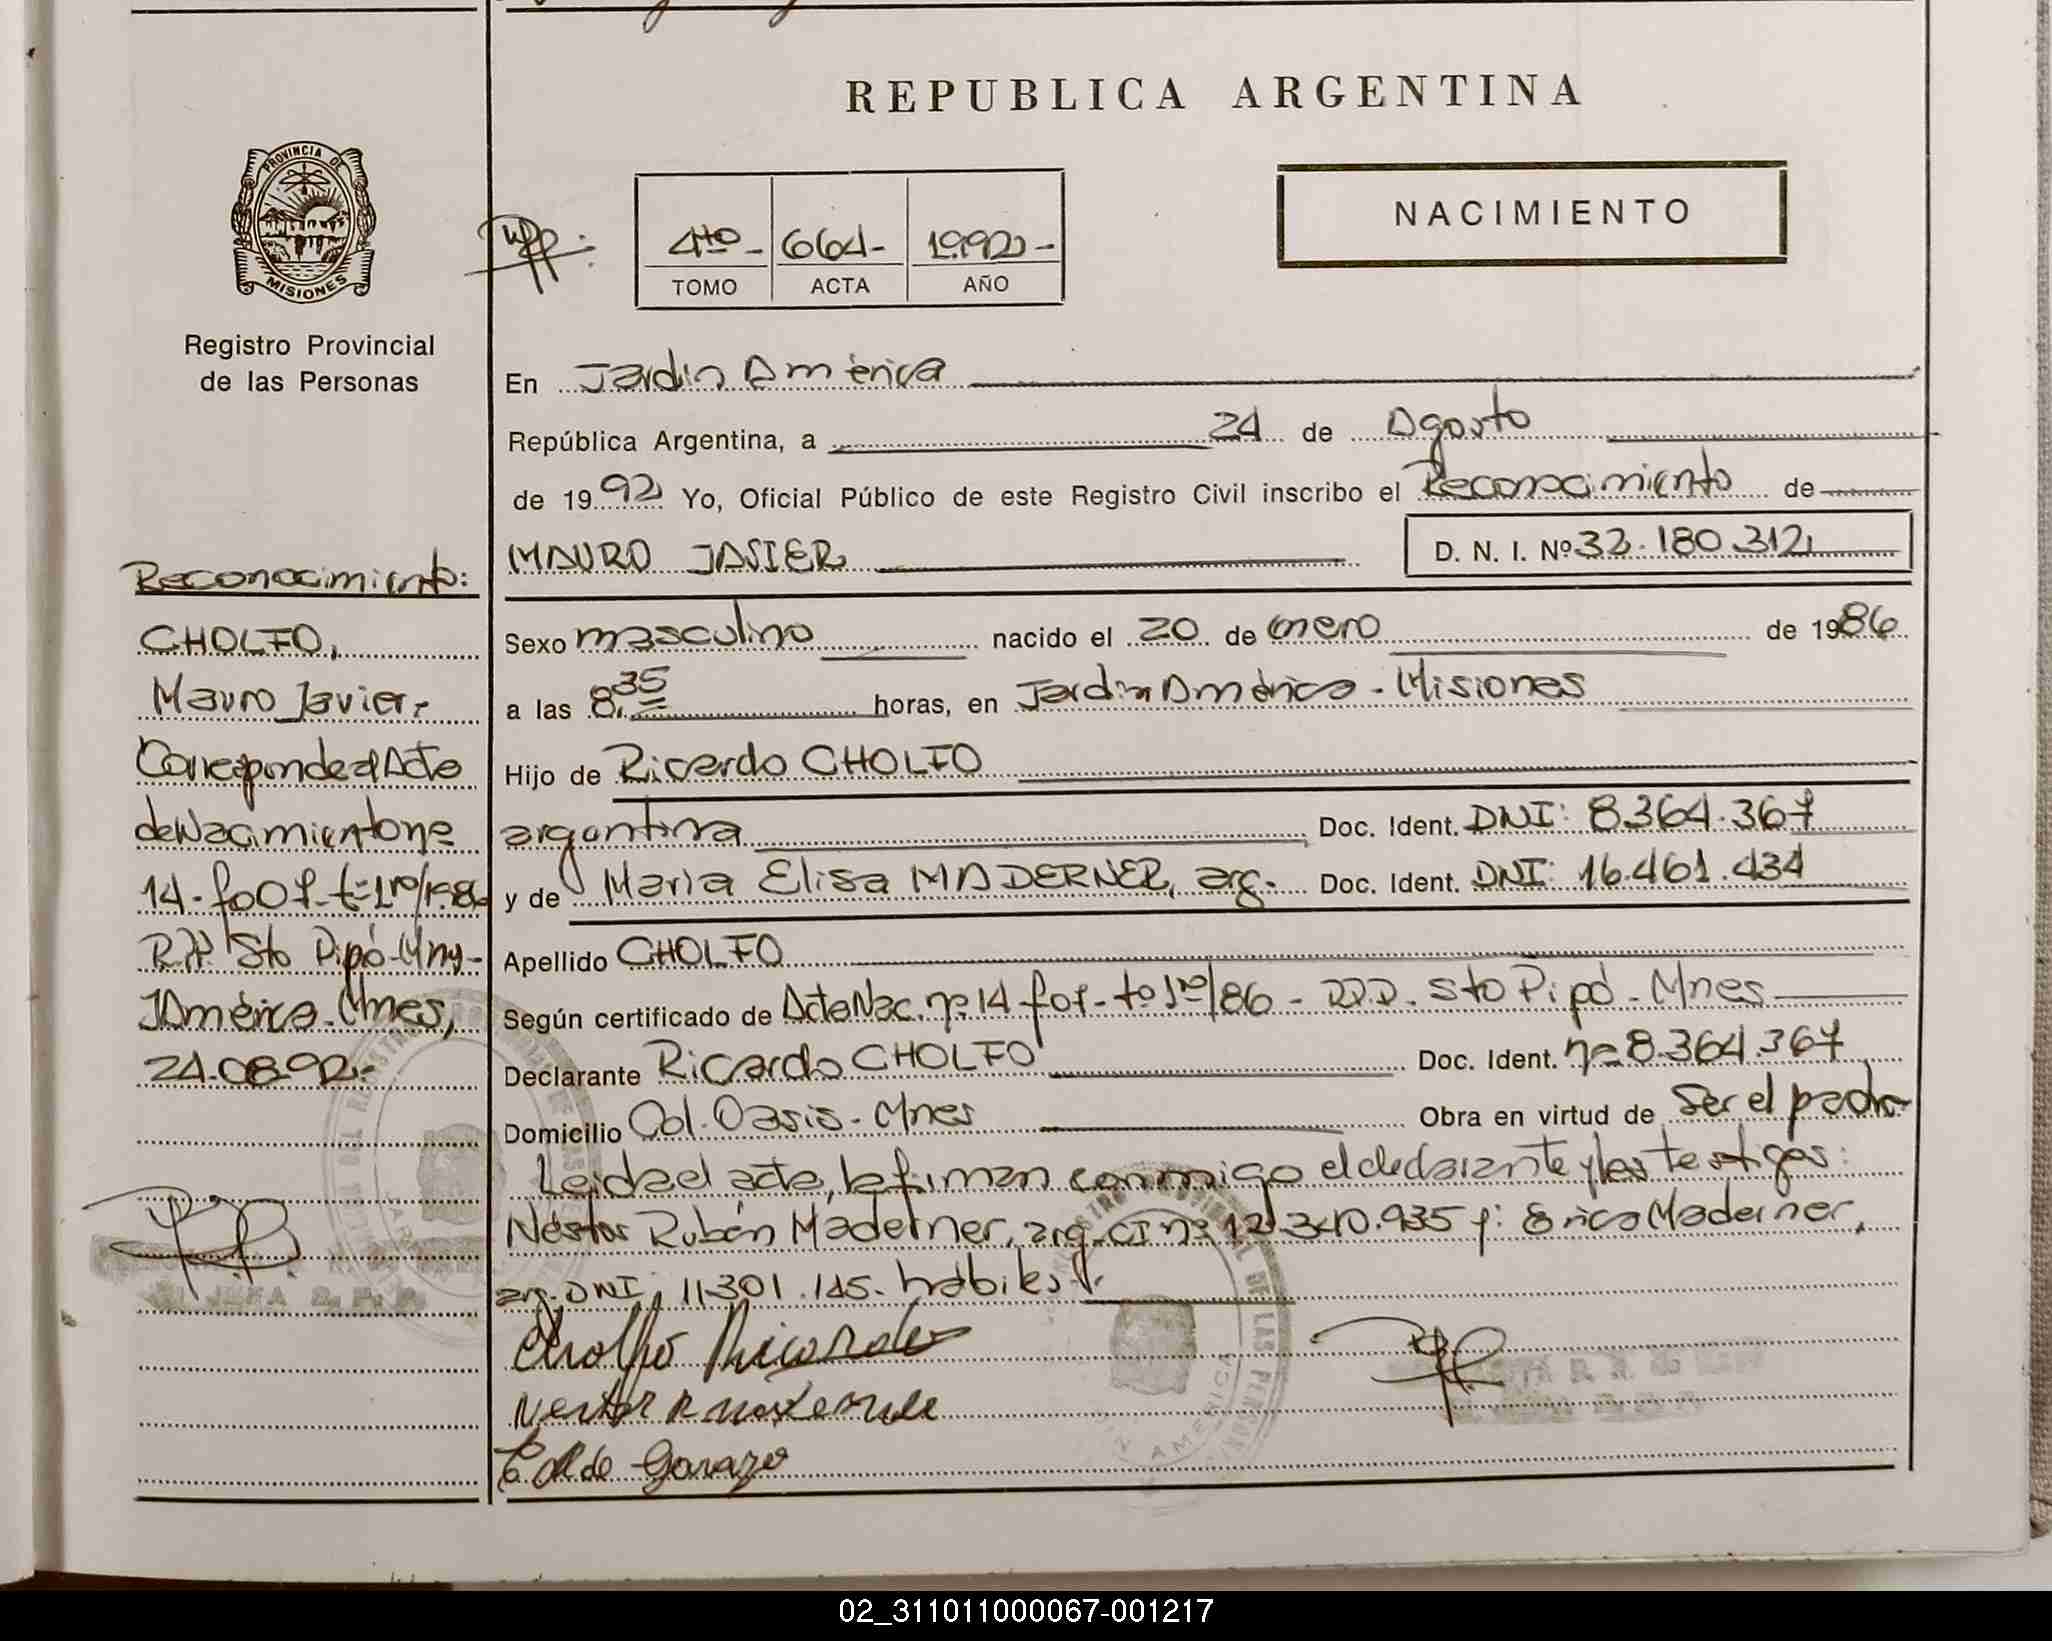 REPUBLICA ARGENTINA
PROVINCIA DE
MISIONES
Registro Provincial
de las Personas
NACIMIENTO
4to - 664- 1992 -
TOMO ACTA AÑO
En Jardín América
República Argentina, a 24 de Agosto
de 1992 Yo, Oficial Público de este Registro Civil inscribo el Reconocimiento de
MAURO JAVIER D. N. I. Nº 32.180.312
Sexo masculino nacido el 20 de enero de 1986
a las 8,35 horas, en Jardín América - Misiones
Hijo de Ricardo CHOLFO
argentina Doc. Ident. DNI: 8.364.367
y de María Elisa MADERNER, arg. Doc. Ident. DNI: 16.461.434
Apellido CHOLFO
Según certificado de Acta Nac. nº 14 fo 7- to 1ro/86 - Sto Pipó - Mnes
Declarante Ricardo CHOLFO Doc. Ident. nº 8.364.367
Domicilio Col. Oasis - Mnes Obra en virtud de Ser el padre
Leída el acta, la firman conmigo el declarante y los testigos:
Néstor Rubén Maderner, arg. CI nº 12.340.935 y: Erica Maderner,
arg. DNI: 11.301.145. hábiles
Cholfo Ricardo
Nestor R
Reconocimiento:
CHOLFO,
Mauro Javier,-
Corresponde al Acta
de Nacimiento nº
14- fo 07- t= 1ro/1986
Sto Pipó-
J América- Mnes,
24-08-92-
AMERICA
02_311011000067-001217